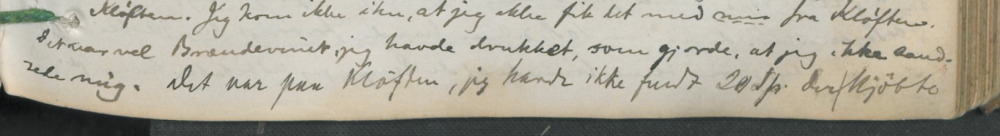 Kløften. Jeg kom ikke ihu, at jeg ikke fik det med mig fra Kløften.
Det var vel Brændevinet, jeg havde drukket, som gjorde, at jeg ikke sand-
sede mig. Det var paa Kløften, jeg havde ikke fundt 20 Sp. der Kjöbte